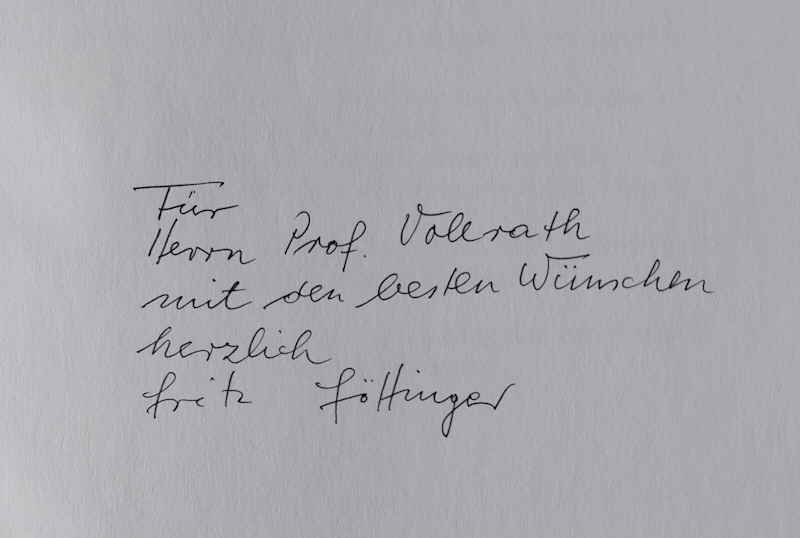 Für
Herrn Prof. Vollrath
mit den besten Wünschen
herzlich
Fritz Föttinger